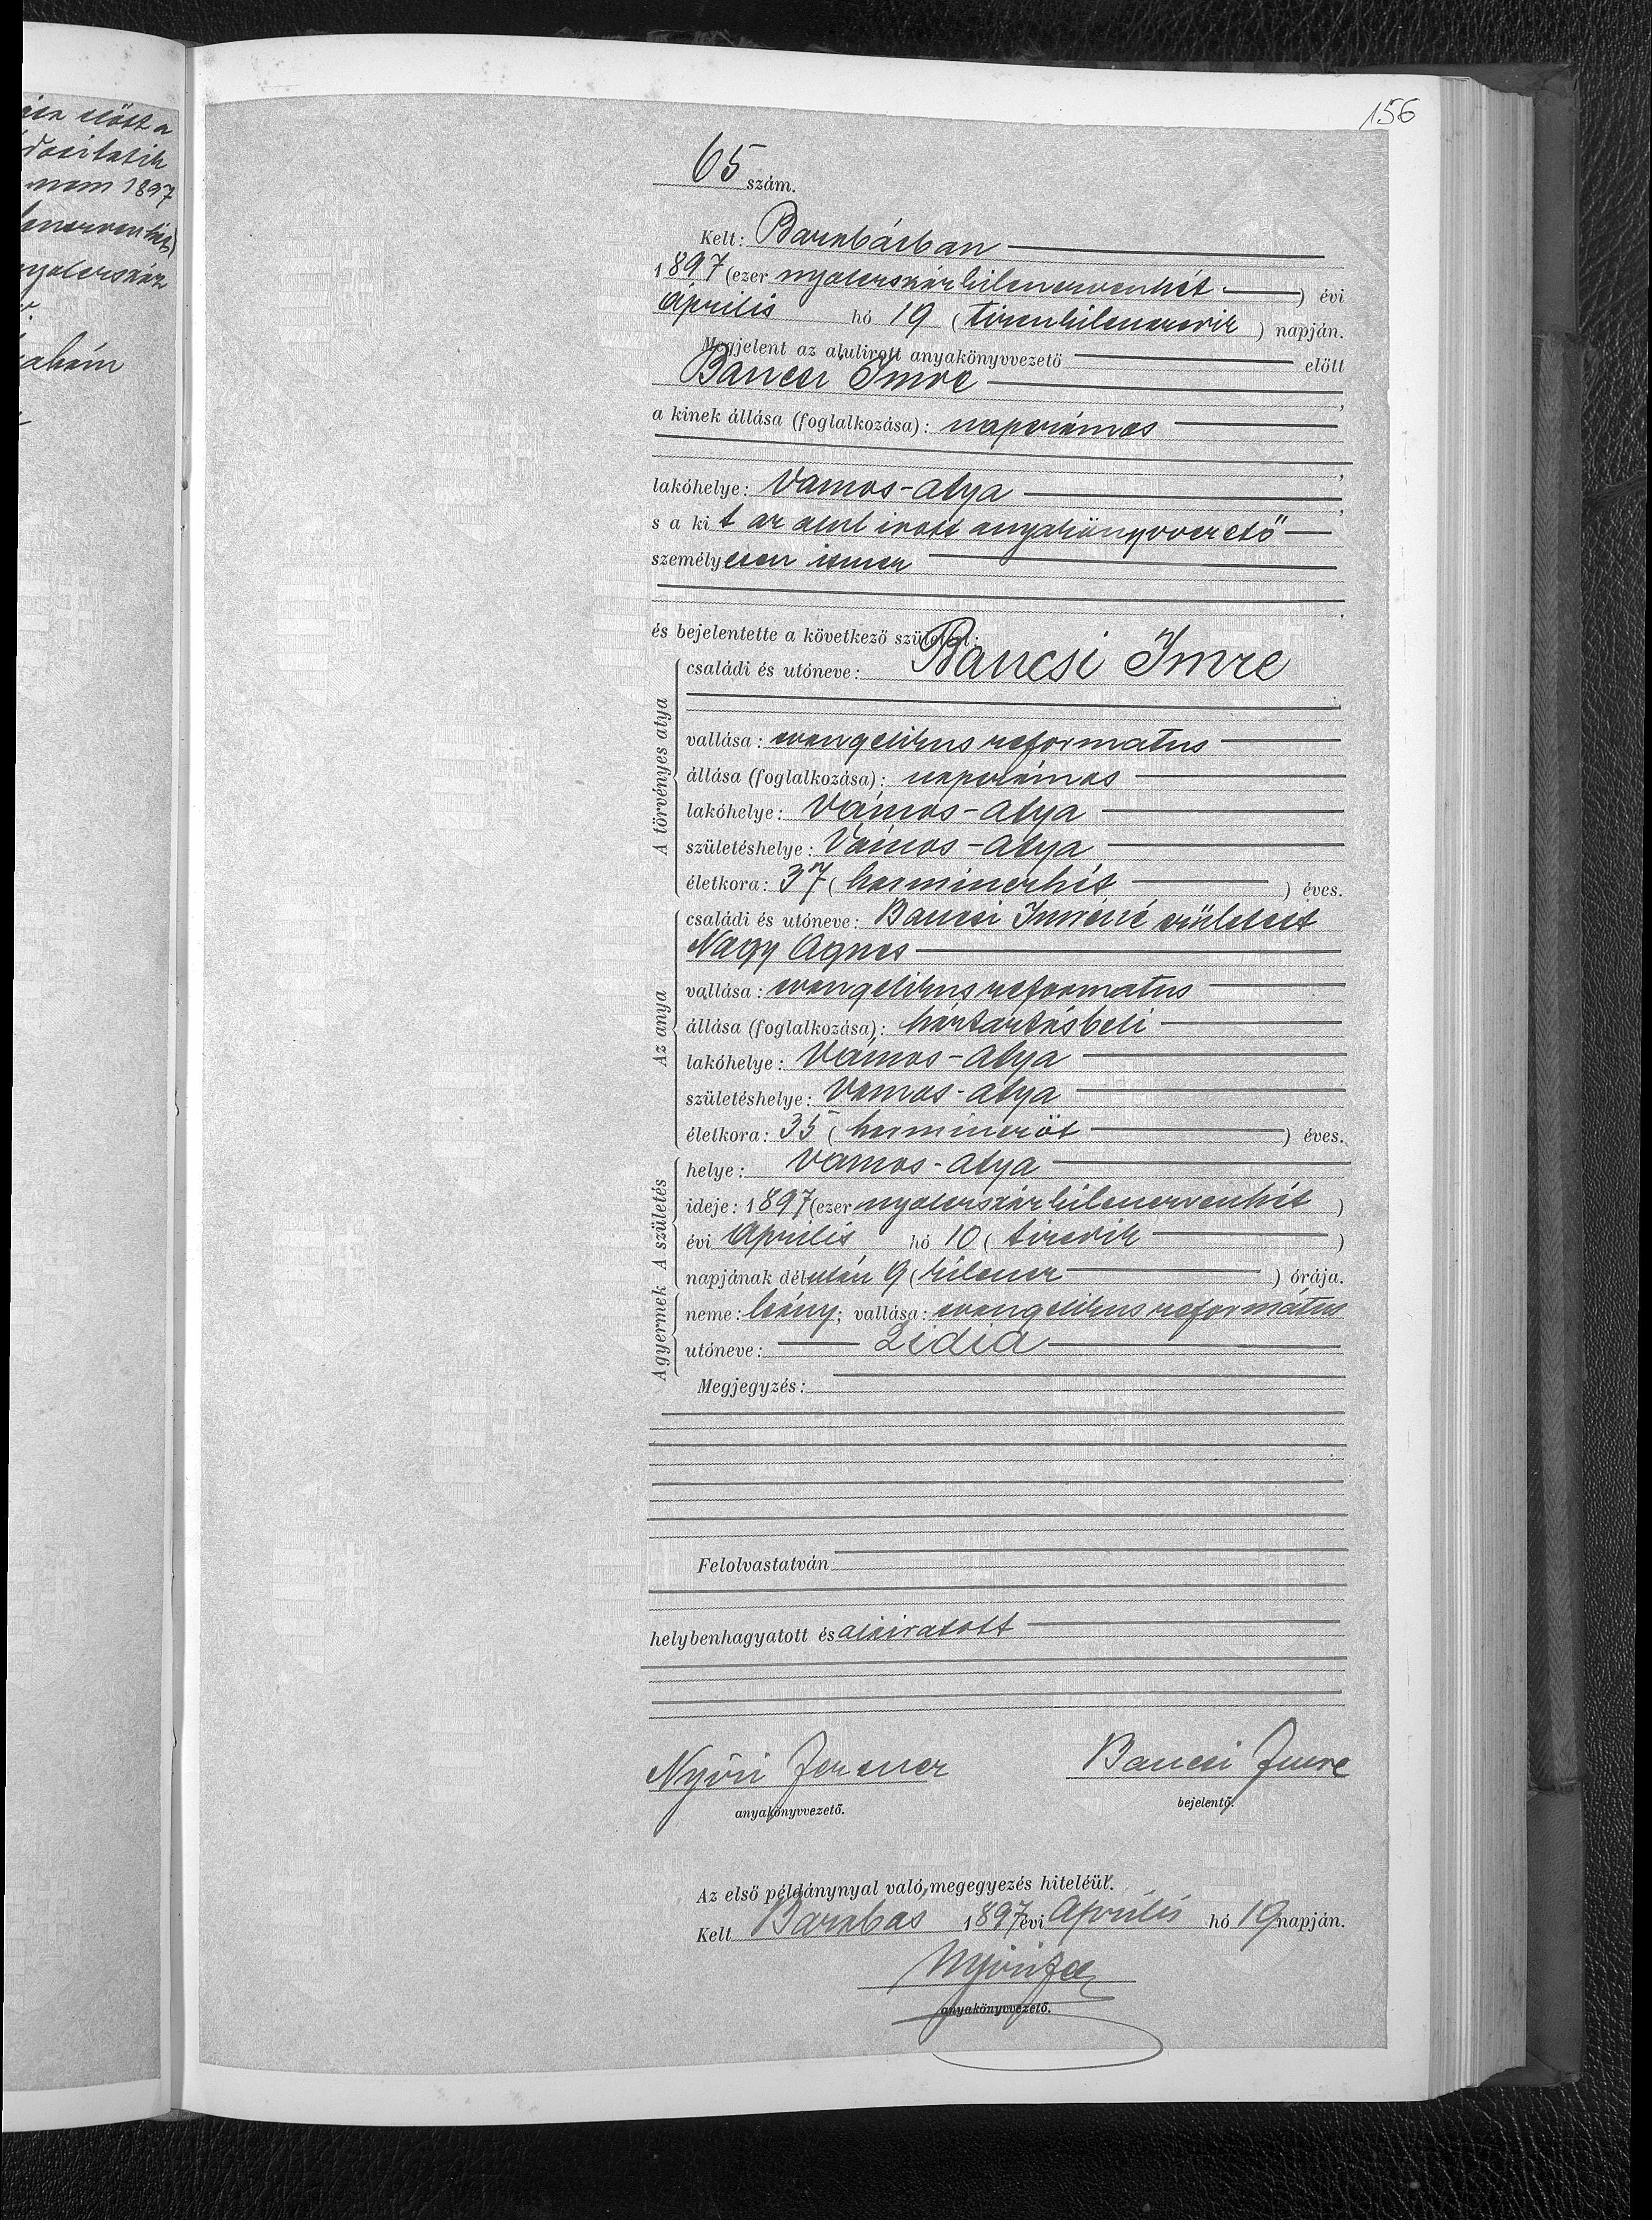 156
65 szám.
Kelt: Barabásban
1897 (ezer nyolcszázkilencvenhét) évi
Április hó 19 (tizenkilencedik) napján.
Megjelent az alulirott anyakönyvvezető előtt
Bancsi Imre,
a kinek állása (foglalkozása): napszámos
lakóhelye: Vámos-Atya,
s a kit az alul irott anyakönyvvezető
személyesen ismer
és bejelentette a következő születést:
A törvényes atya
családi és utóneve: Bancsi Imre
vallása: evangelikus reformatus
állása (foglalkozása): napszámos
lakóhelye: Vámos-Atya
születéshelye: Vámos-Atya
életkora: 37 (harminczhét) éves.
Az anya
családi és utóneve: Bancsi Imréné született
Nagy Agnes
vallása: evangelikus reformatus
állása (foglalkozása): háztartásbeli
lakóhelye: Vámos-Atya
születéshelye: Vámos-Atya
életkora: 35 (harminczöt) éves.
A születés
helye: Vámos-Atya
ideje: 1897 (ezer nyolcszázkilencvenhét)
évi Április hó 10 (tizedik)
napjának délután 9 (kilencz) órája.
A gyermek
neme: leány; vallása: evangelikus református
utóneve: Lidia
Megjegyzés:
Felolvastatván
helybenhagyatott és aláiratott
Nyíri Ferencz Bancsi Imre
anyakönyvvezető. bejelentő.
Az első példánynyal való megegyezés hiteléül.
Kelt Barabás 1897 évi Április hó 19 napján.
anyakönyvvezető.